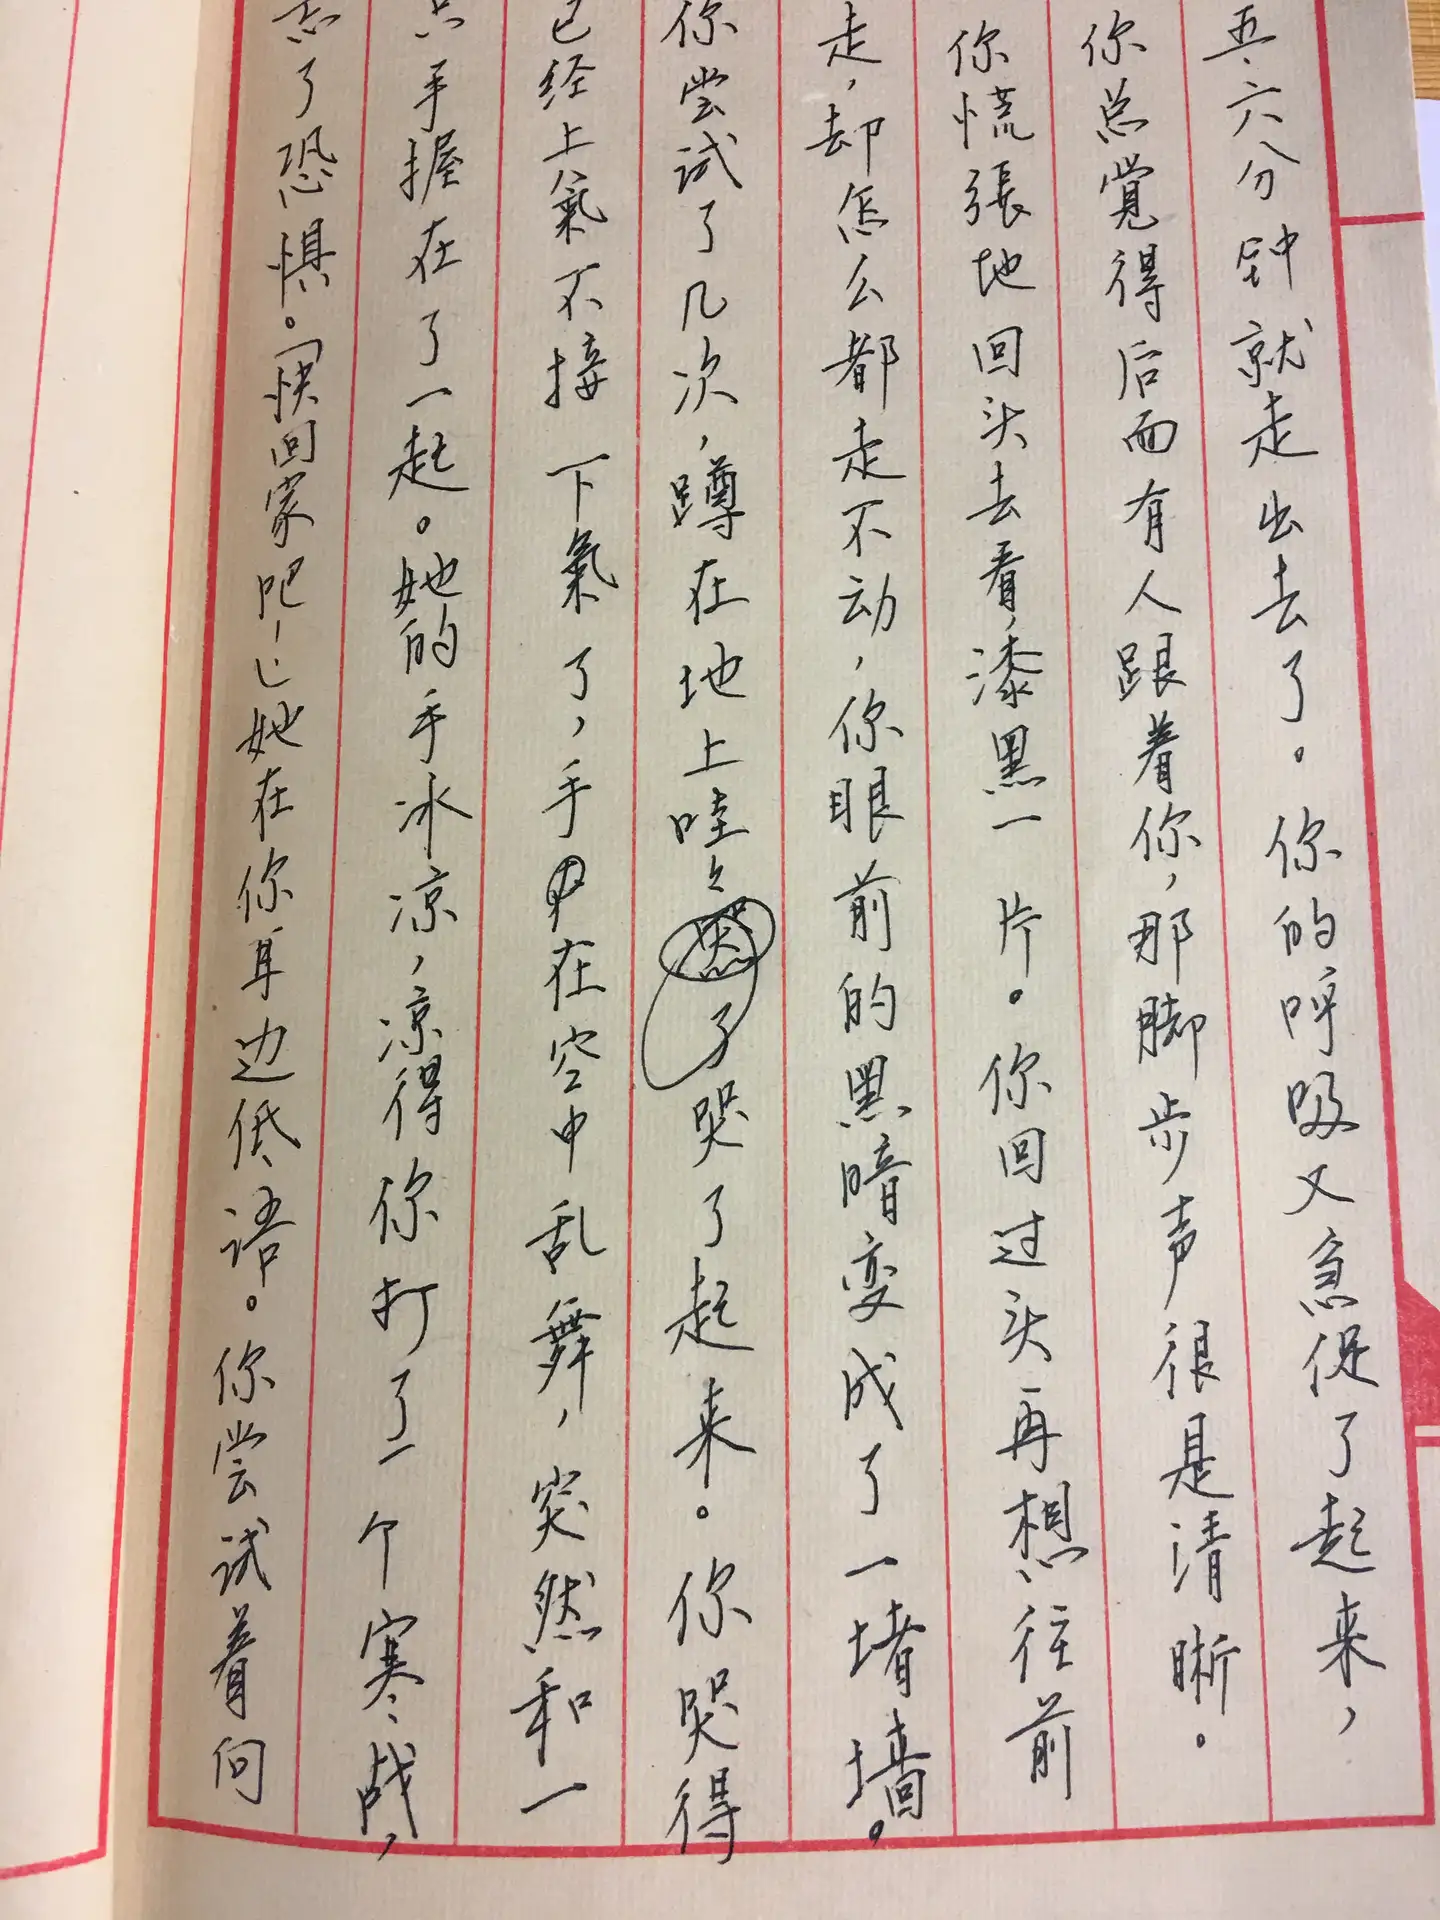 五、六分钟就走出去了。你的呼吸又急促了起来，
你总覺得后面有人跟着你，那脚步声很是清晰。
你慌張地回头去看，漆黑一片。你回过头再想往前
走，却怎么都走不动，你眼前的黑暗变成了一堵墙。
你尝试了几次，蹲在地上哇々了哭了起来。你哭得
已经上氣不接下氣了，手在空中乱舞，突然和一
只手握在了一起。她的手冰凉，凉得你打了一个寒战，
忘了恐惧。「快回家吧！」她在你耳边低语。你尝试着向